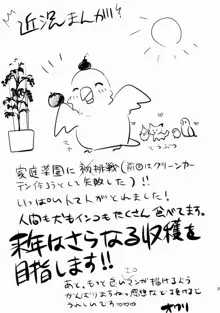 近況まんが?
どうぶつ
家庭菜園に初挑戦(前回はグリーンカー
テン作ろうとして失敗した)!!
いっぱい人て人がとれました!
人間も犬もインコもたくさん食べてます。
来年はさらなる収穫を
目指します!!
あと、もっと良いエロマンガ描けるよう
がんばりますね。感想などで頂けると
うれしいです
オクリ